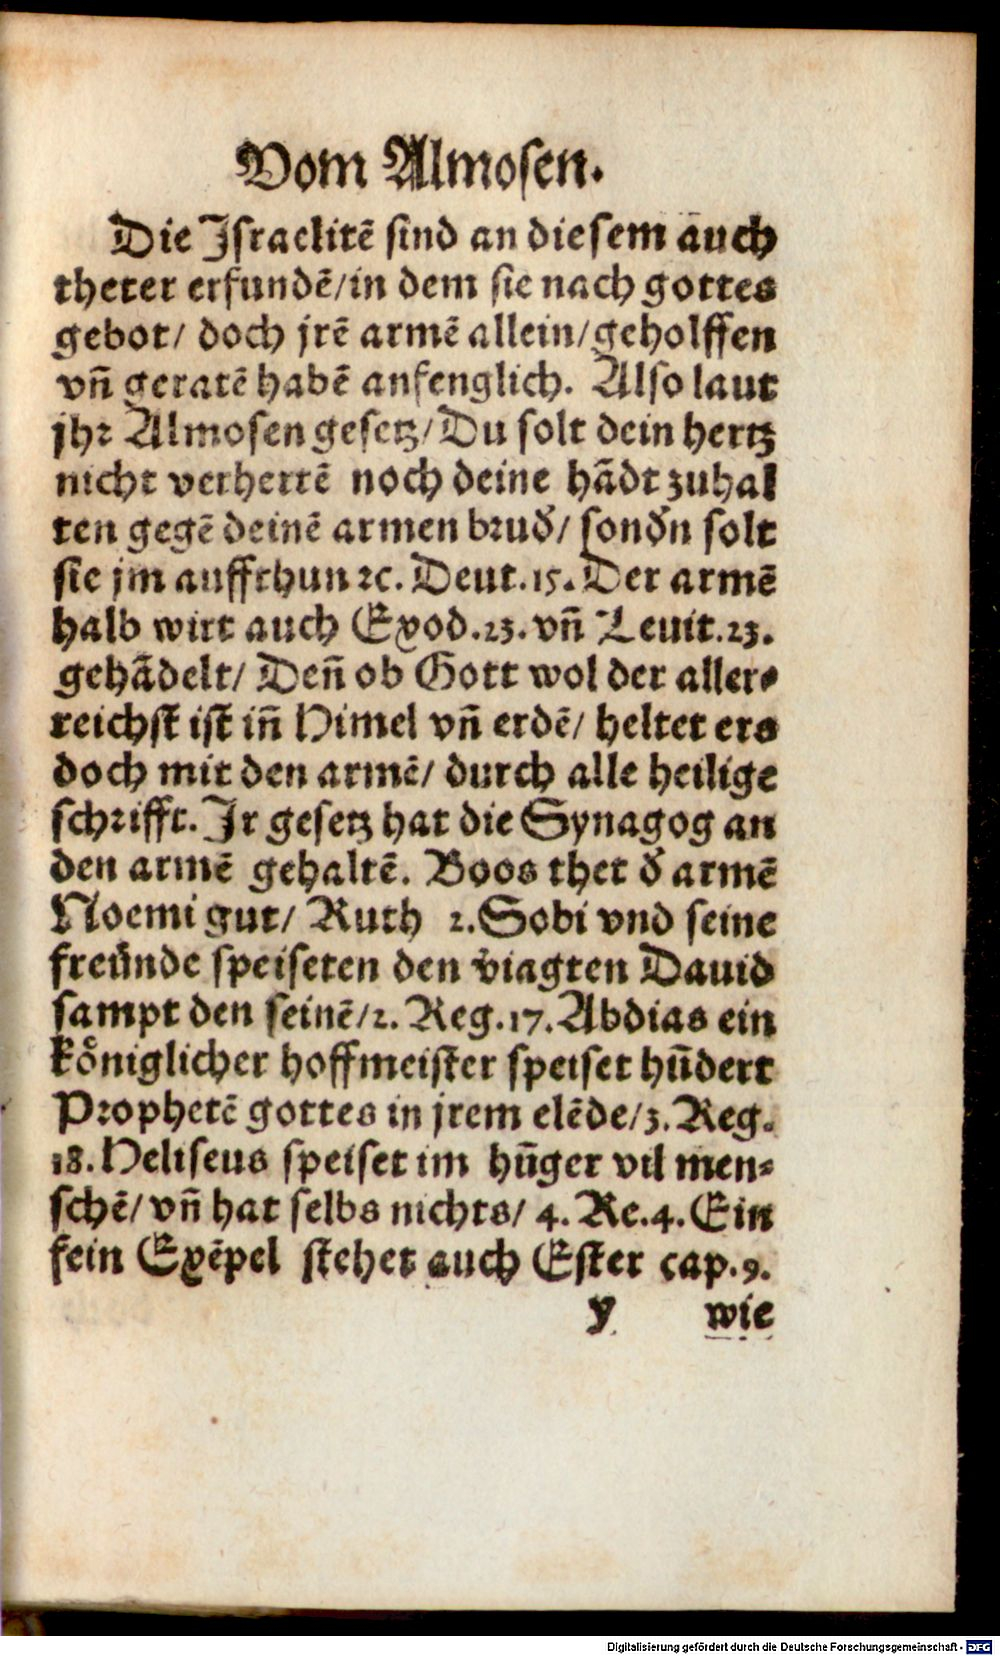 Vom Almosen.
Die Israelitē sind an diesem auch
theter erfundē/in dem sie nach gottes
gebot/ doch jrē armē allein/geholffen
vñ geratē habē anfenglich. Also laut
jhr Almosen gesetz/Du solt dein hertz
nicht verhertē noch deine hādt zuhal
ten gegē deinē armen brud̕/ sond̕n solt
sie jm auffthun ꝛc. Deut.15. Der armē
halb wirt auch Exod.23. vñ Leuit.23.
gehādelt/ Deñ ob Gott wol der aller-
reichst ist iñ Himel vñ erdē/ heltet ers
doch mit den armē/ durch alle heilige
schrifft. Jr gesetz hat die Synagog an
den armē gehaltē. Boos thet d̕ armē
Noemi gut/ Ruth 2. Sobi vnd seine
freünde speiseten den v̈iagten Dauid
sampt den seinē/2. Reg.17. Abdias ein
koͤniglicher hoffmeister speiset hūdert
Prophetē gottes in jrem elēde/3. Reg.
18. Heliseus speiset im hūger vil men-
schē/ vñ hat selbs nichts/ 4. Re.4. Ein
fein Exēpel stehet auch Ester cap.9.
y wie
Digitalisierung gefördert durch die Deutsche Forschungsgemeinschaft - DFG